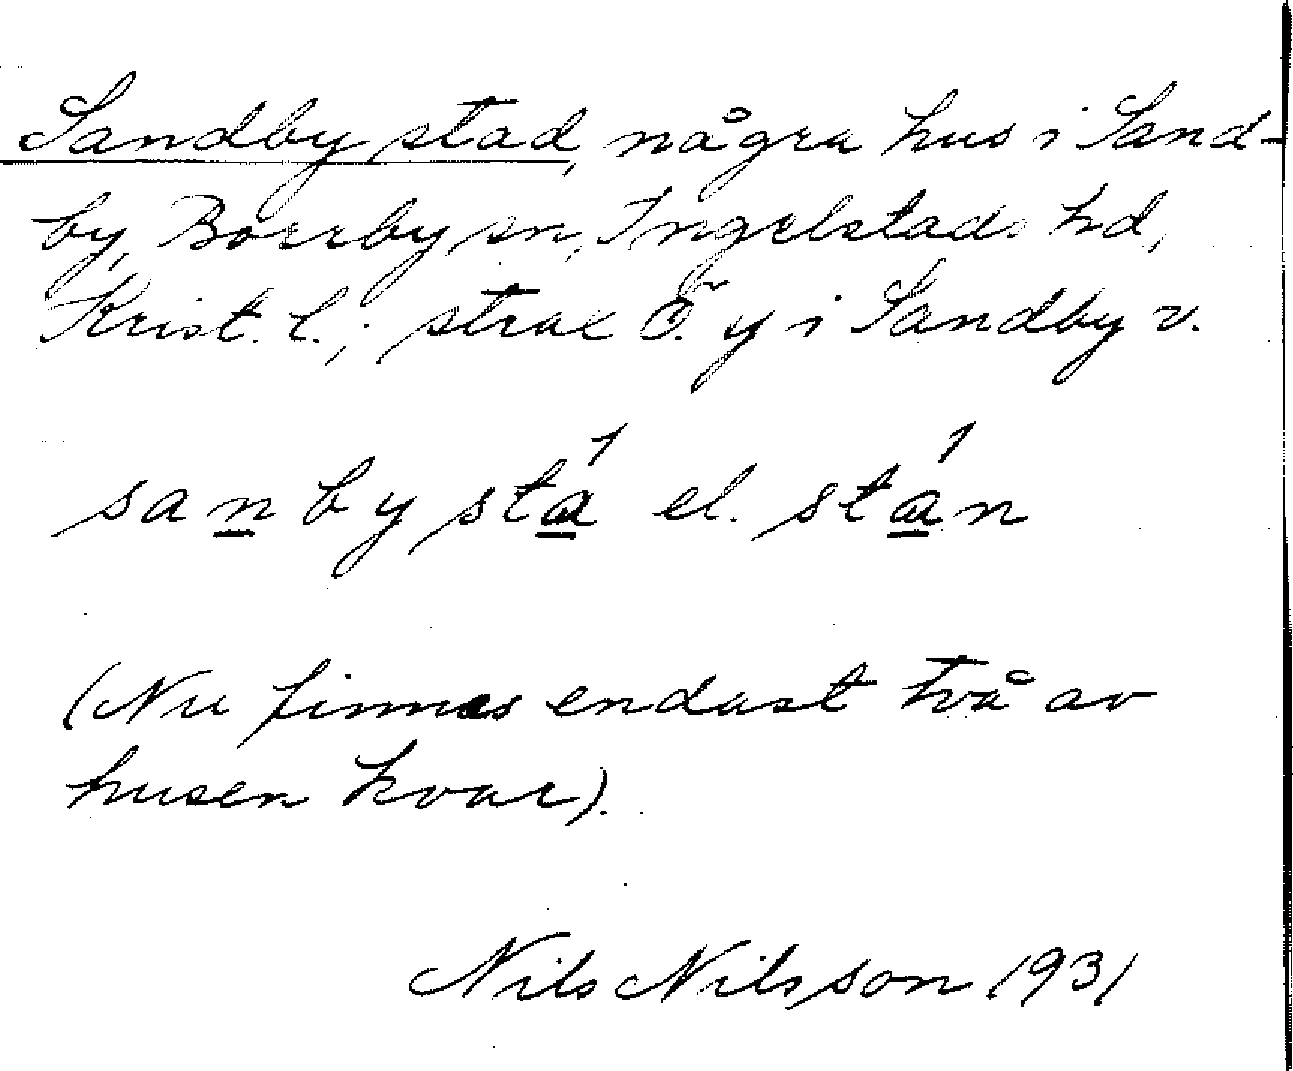 Sandby stad, några hus i Sand-
by, Borrby sn, Ingelstads hd,
Krist. l.; strax Ö. y i Sandby v.
sanby stá el. stán
(Nu finnes endast två av
husen kvar).
Nils Nilsson 1931